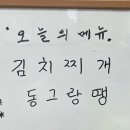 오늘의 메뉴.
김치찌개
동그랑땡